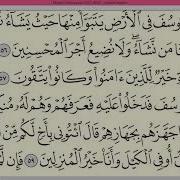 يُوسُفَ فِى ٱلْأَرْضِ يَتَبَوَّأُ مِنْهَا حَيْثُ يَشَآءُ
مَن نَّشَآءُ وَلَا نُضِيعُ أَجْرَ ٱلْمُحْسِنِينَ ٥٦
خَيْرٌ لِّلَّذِينَ ءَامَنُوا۟ وَكَانُوا۟ يَتَّقُونَ ٥٧
يُوسُفَ فَدَخَلُوا۟ عَلَيْهِ فَعَرَفَهُمْ وَهُمْ لَهُۥ
جَهَّزَهُم بِجَهَازِهِمْ قَالَ ٱئْتُونِى بِأَخٍ لَّكُم مِّنْ
أُوفِى ٱلْكَيْلَ وَأَنَا۠ خَيْرُ ٱلْمُنزِلِينَ ٥٩ فَإِن